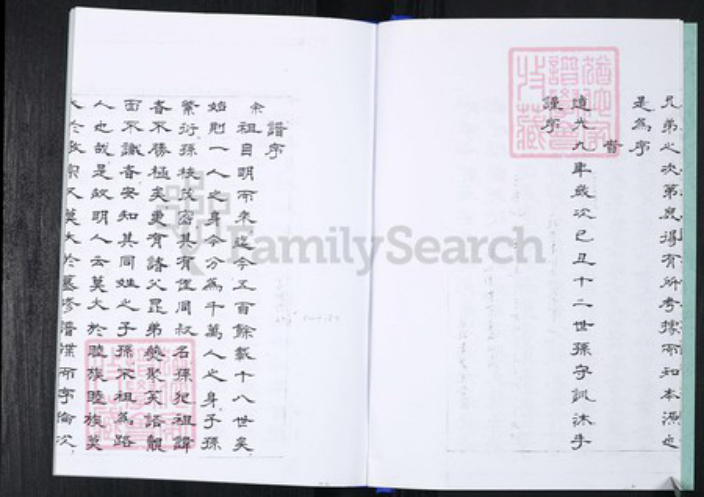 兄弟之次第庶得有所考據而知本源也
是為序
旹
道光九年歲次己丑十二世孫守訓沐手
謹序
譜序
余祖自明而來迄今五百餘載十八世矣
始則一人之身今分為千萬人之身子孫
繁衍孫枝茂密其有侄同叔名孫犯祖諱
者不勝極矣更有諸父昆弟聚笑語觀
面不識者安知其同姓之子孫不祖為路
人也哉是故明人云莫大於睦族睦族莫
大於敬宗又莫大於修譜牒而序倫次
FamilySearch